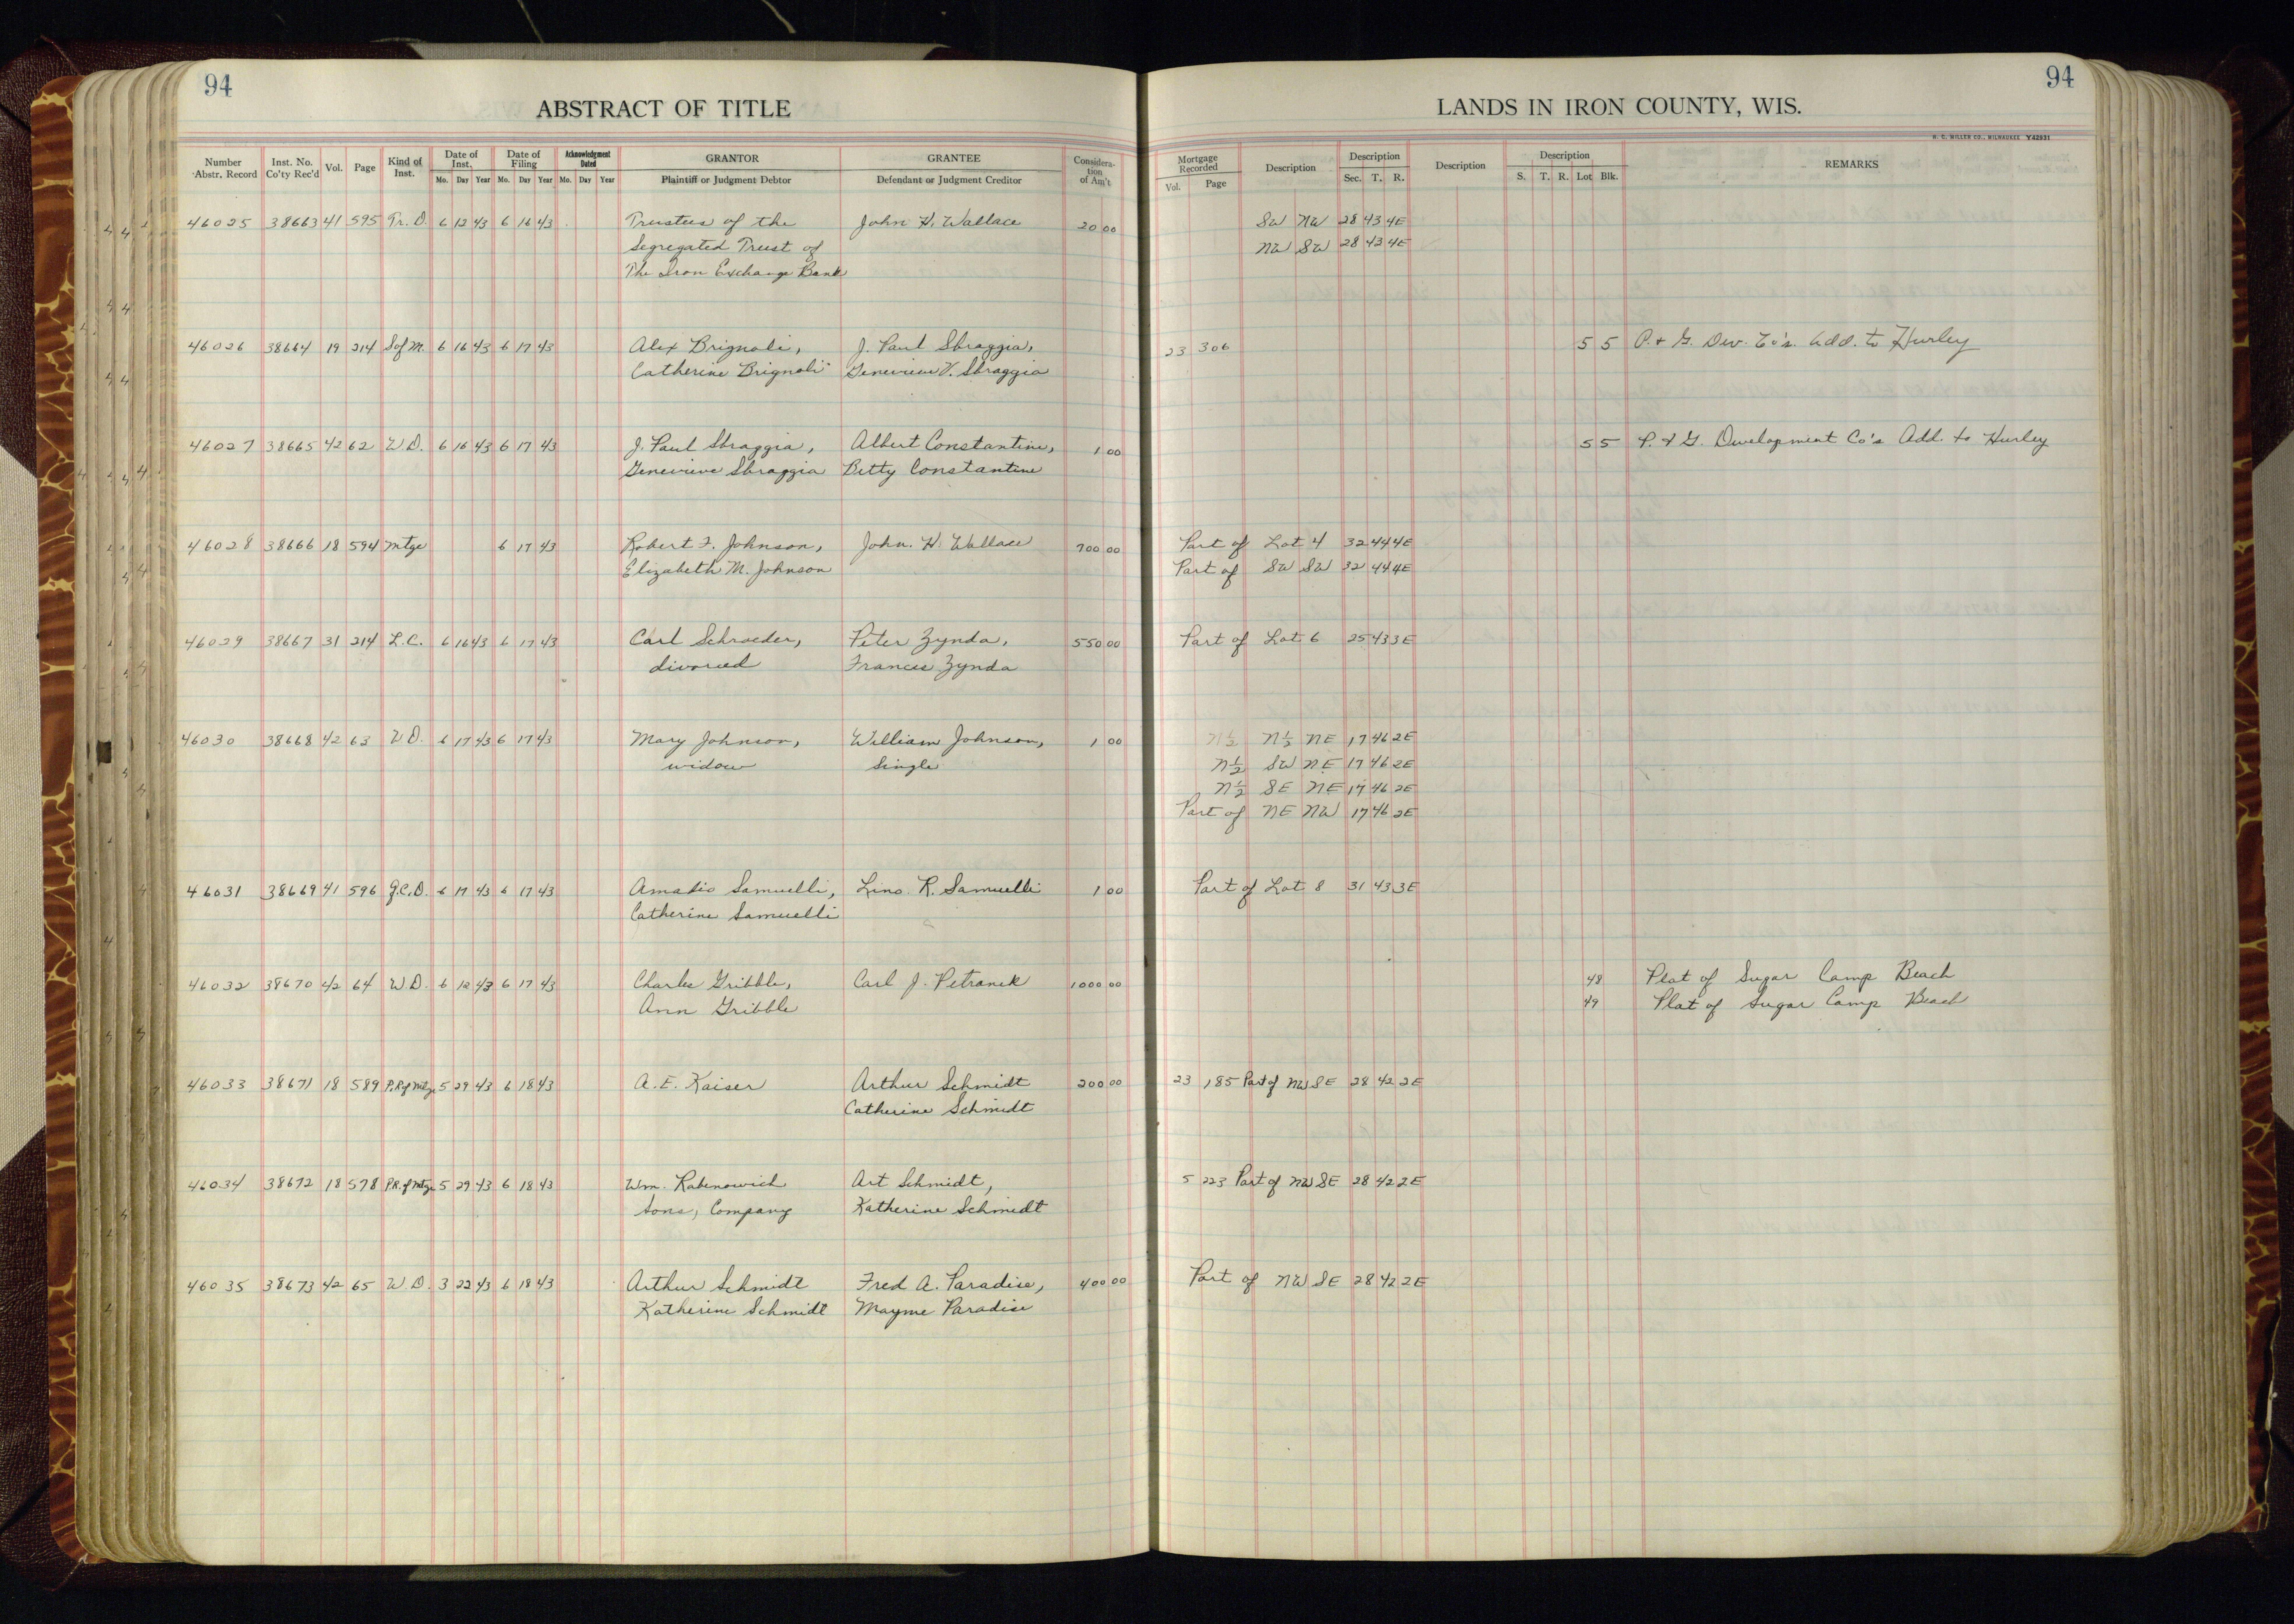 94
94
ABSTRACT OF TITLE
LANDS IN IRON COUNTY, WIS.
H. C. MILLER CO., MILWAUKEE Y42931
Number Abstr. Record Inst. No. Co'ty Rec'd Vol. Page Kind of Inst. Date of Inst. Mo. Day Year Date of Filing Mo. Day Year Acknowledgment Dated Mo. Day Year GRANTOR Plaintiff or Judgment Debtor GRANTEE Defendant or Judgment Creditor Consideration of Am't Mortgage Recorded Vol. Page Description Description Sec. T. R. Description Description S. T. R. Lot Blk. REMARKS
46025 38663 41 595 Tr. D. 6 12 43 6 16 43 Trustees of the John H. Wallace 20 00 SW NW 28 43 4E
Segregated Trust of NW SW 28 43 4E
The Iron Exchange Bank
46026 38664 19 214 S of M. 6 16 43 6 17 43 Alex Brignoli, J. Paul Sbraggia, 23 306 5 5 P. & G. Dev. Co's. Add. to Hurley
Catherine Brignoli Genevieve V. Sbraggia
46027 38665 42 62 W.D. 6 16 43 6 17 43 J. Paul Sbraggia, Albert Constantine, 1 00 5 5 P. & G. Development Co's Add. to Hurley
Genevieve Sbraggia Betty Constantine
46028 38666 18 594 Mtge 6 17 43 Robert F. Johnson, John. H. Wallace 700 00 Part of Lot 4 32 44 4E
Elizabeth M. Johnson Part of SW SW 32 44 4E
46029 38667 31 214 L.C. 6 16 43 6 17 43 Carl Schroeder, Peter Zynda, 550 00 Part of Lot 6 25 43 3E
divorced Frances Zynda
46030 38668 42 63 W.D. 6 17 43 6 17 43 Mary Johnson, William Johnson, 1 00 N½ N½ NE 17 46 2E
widow Single N½ SW NE 17 46 2E
N½ SE NE 17 46 2E
Part of NE NW 17 46 2E
46031 38669 41 596 Q.C.D. 6 17 43 6 17 43 Amadio Samuelli, Lino. R. Samuelli 1 00 Part of Lot 8 31 43 3E
Catherine Samuelli
46032 38670 42 64 W.D. 6 12 43 6 17 43 Charles Gribble, Carl J. Petranek 1000 00 48 Plat of Sugar Camp Beach
Ann Gribble 49 Plat of Sugar Camp Beach
46033 38671 18 589 P.R. of Mtge 5 29 43 6 18 43 A. E. Kaiser Arthur Schmidt 200 00 23 185 Part of NW SE 28 42 2E
Catherine Schmidt
46034 38672 18 578 P.R. of Mtge 5 29 43 6 18 43 Wm. Rabenowich Art Schmidt, 5 223 Part of NW SE 28 42 2E
Sons, Company Katherine Schmidt
46035 38673 42 65 W.D. 3 22 43 6 18 43 Arthur Schmidt Fred A. Paradise, 400 00 Part of NW SE 28 42 2E
Katherine Schmidt Mayme Paradise